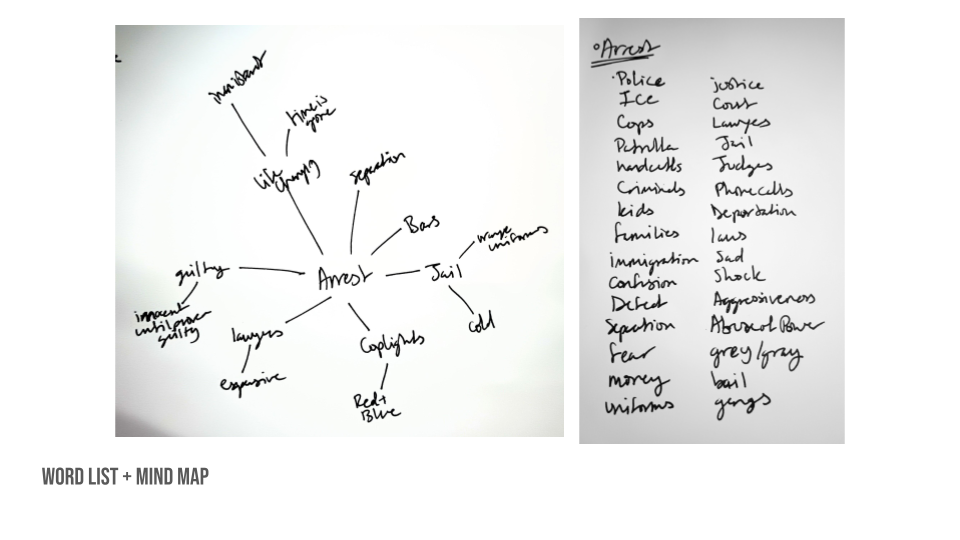 time is
gone
Life
separation
Bars
orange
uniforms
guilty
Arrest
Jail
innocent
until proven
guilty
lawyers
Coplights
cold
expensive
Red +
Blue
Arrest
Police
Ice
Cops
Patrulla
handcuffs
Criminals
kids
families
immigration
confusion
Defeat
Separation
fear
money
uniforms
justice
Court
Lawyers
Jail
Judges
Phone calls
Deportation
laws
Sad
Shock
Aggressiveness
Abuse of Power
grey/gray
bail
gangs
WORD LIST + MIND MAP